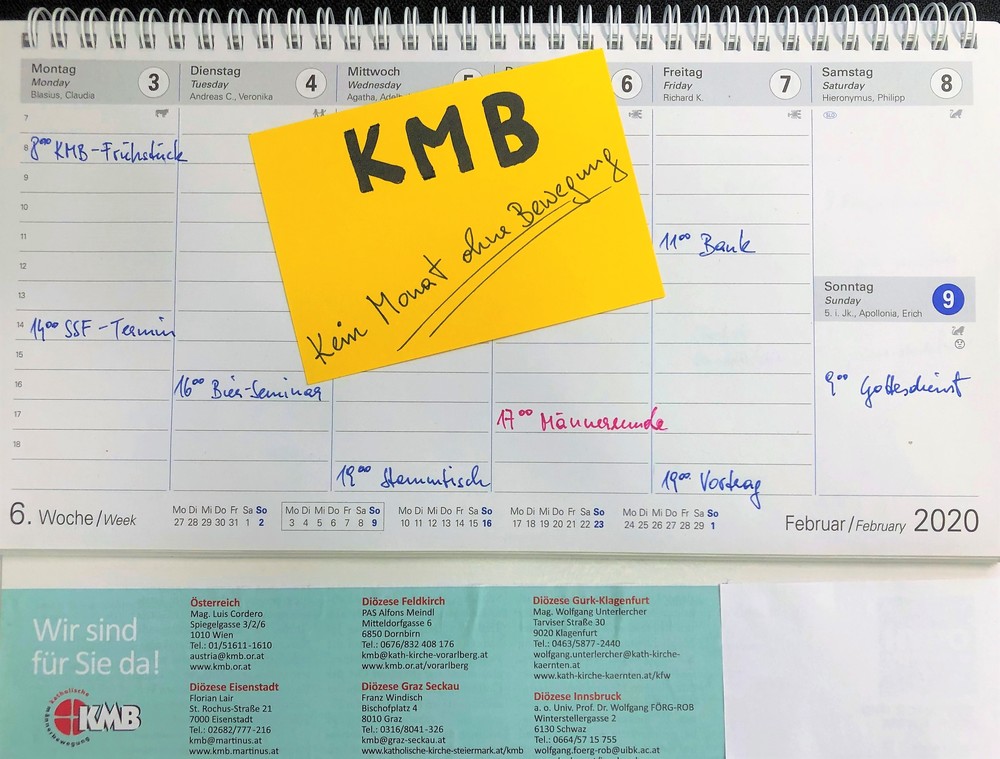 Montag
Monday
Blasius, Claudia
3
Dienstag
Tuesday
Andreas C., Veronika
4
Mittwoch
Wednesday
Agatha,
6
Freitag
Friday
Richard K.
7
Samstag
Saturday
Hieronymus, Philipp
8
7
8
9
10
11
12
13
14
15
16
17
18
8⁰⁰ KMB-Frühstück
14⁰⁰ SSF-Termin
16⁰⁰ Bier-Seminar
19⁰⁰ Stammtisch
17⁰⁰ Männerrunde
11⁰⁰ Bank
19⁰⁰ Vortrag
Sonntag
Sunday
5. i. Jk., Apollonia, Erich
9
9⁰⁰ Gottesdienst
KMB
Kein Monat ohne Bewegung
6. Woche/Week
Mo Di Mi Do Fr Sa So
27 28 29 30 31 1 2
Mo Di Mi Do Fr Sa So
3 4 5 6 7 8 9
Mo Di Mi Do Fr Sa So
10 11 12 13 14 15 16
Mo Di Mi Do Fr Sa So
17 18 19 20 21 22 23
Mo Di Mi Do Fr Sa So
24 25 26 27 28 29 1
Februar/February 2020
Wir sind
für Sie da!
katholische
KMB
männerbewegung
Österreich
Mag. Luis Cordero
Spiegelgasse 3/2/6
1010 Wien
Tel.: 01/51611-1610
austria@kmb.or.at
www.kmb.or.at
Diözese Eisenstadt
Florian Lair
St. Rochus-Straße 21
7000 Eisenstadt
Tel.: 02682/777-216
kmb@martinus.at
www.kmb.martinus.at
Diözese Feldkirch
PAS Alfons Meindl
Mitteldorfgasse 6
6850 Dornbirn
Tel.: 0676/832 408 176
kmb@kath-kirche-vorarlberg.at
www.kmb.or.at/vorarlberg
Diözese Graz Seckau
Franz Windisch
Bischofplatz 4
8010 Graz
Tel.: 0316/8041-326
kmb@graz-seckau.at
www.katholische-kirche-steiermark.at/kmb
Diözese Gurk-Klagenfurt
Mag. Wolfgang Unterlercher
Tarviser Straße 30
9020 Klagenfurt
Tel.: 0463/5877-2440
wolfgang.unterlercher@kath-kirche-
kaernten.at
www.kath-kirche-kaernten.at/kfw
Diözese Innsbruck
a. o. Univ. Prof. Dr. Wolfgang FÖRG-ROB
Winterstellergasse 2
6130 Schwaz
Tel.: 0664/57 15 755
wolfgang.foerg-rob@uibk.ac.at